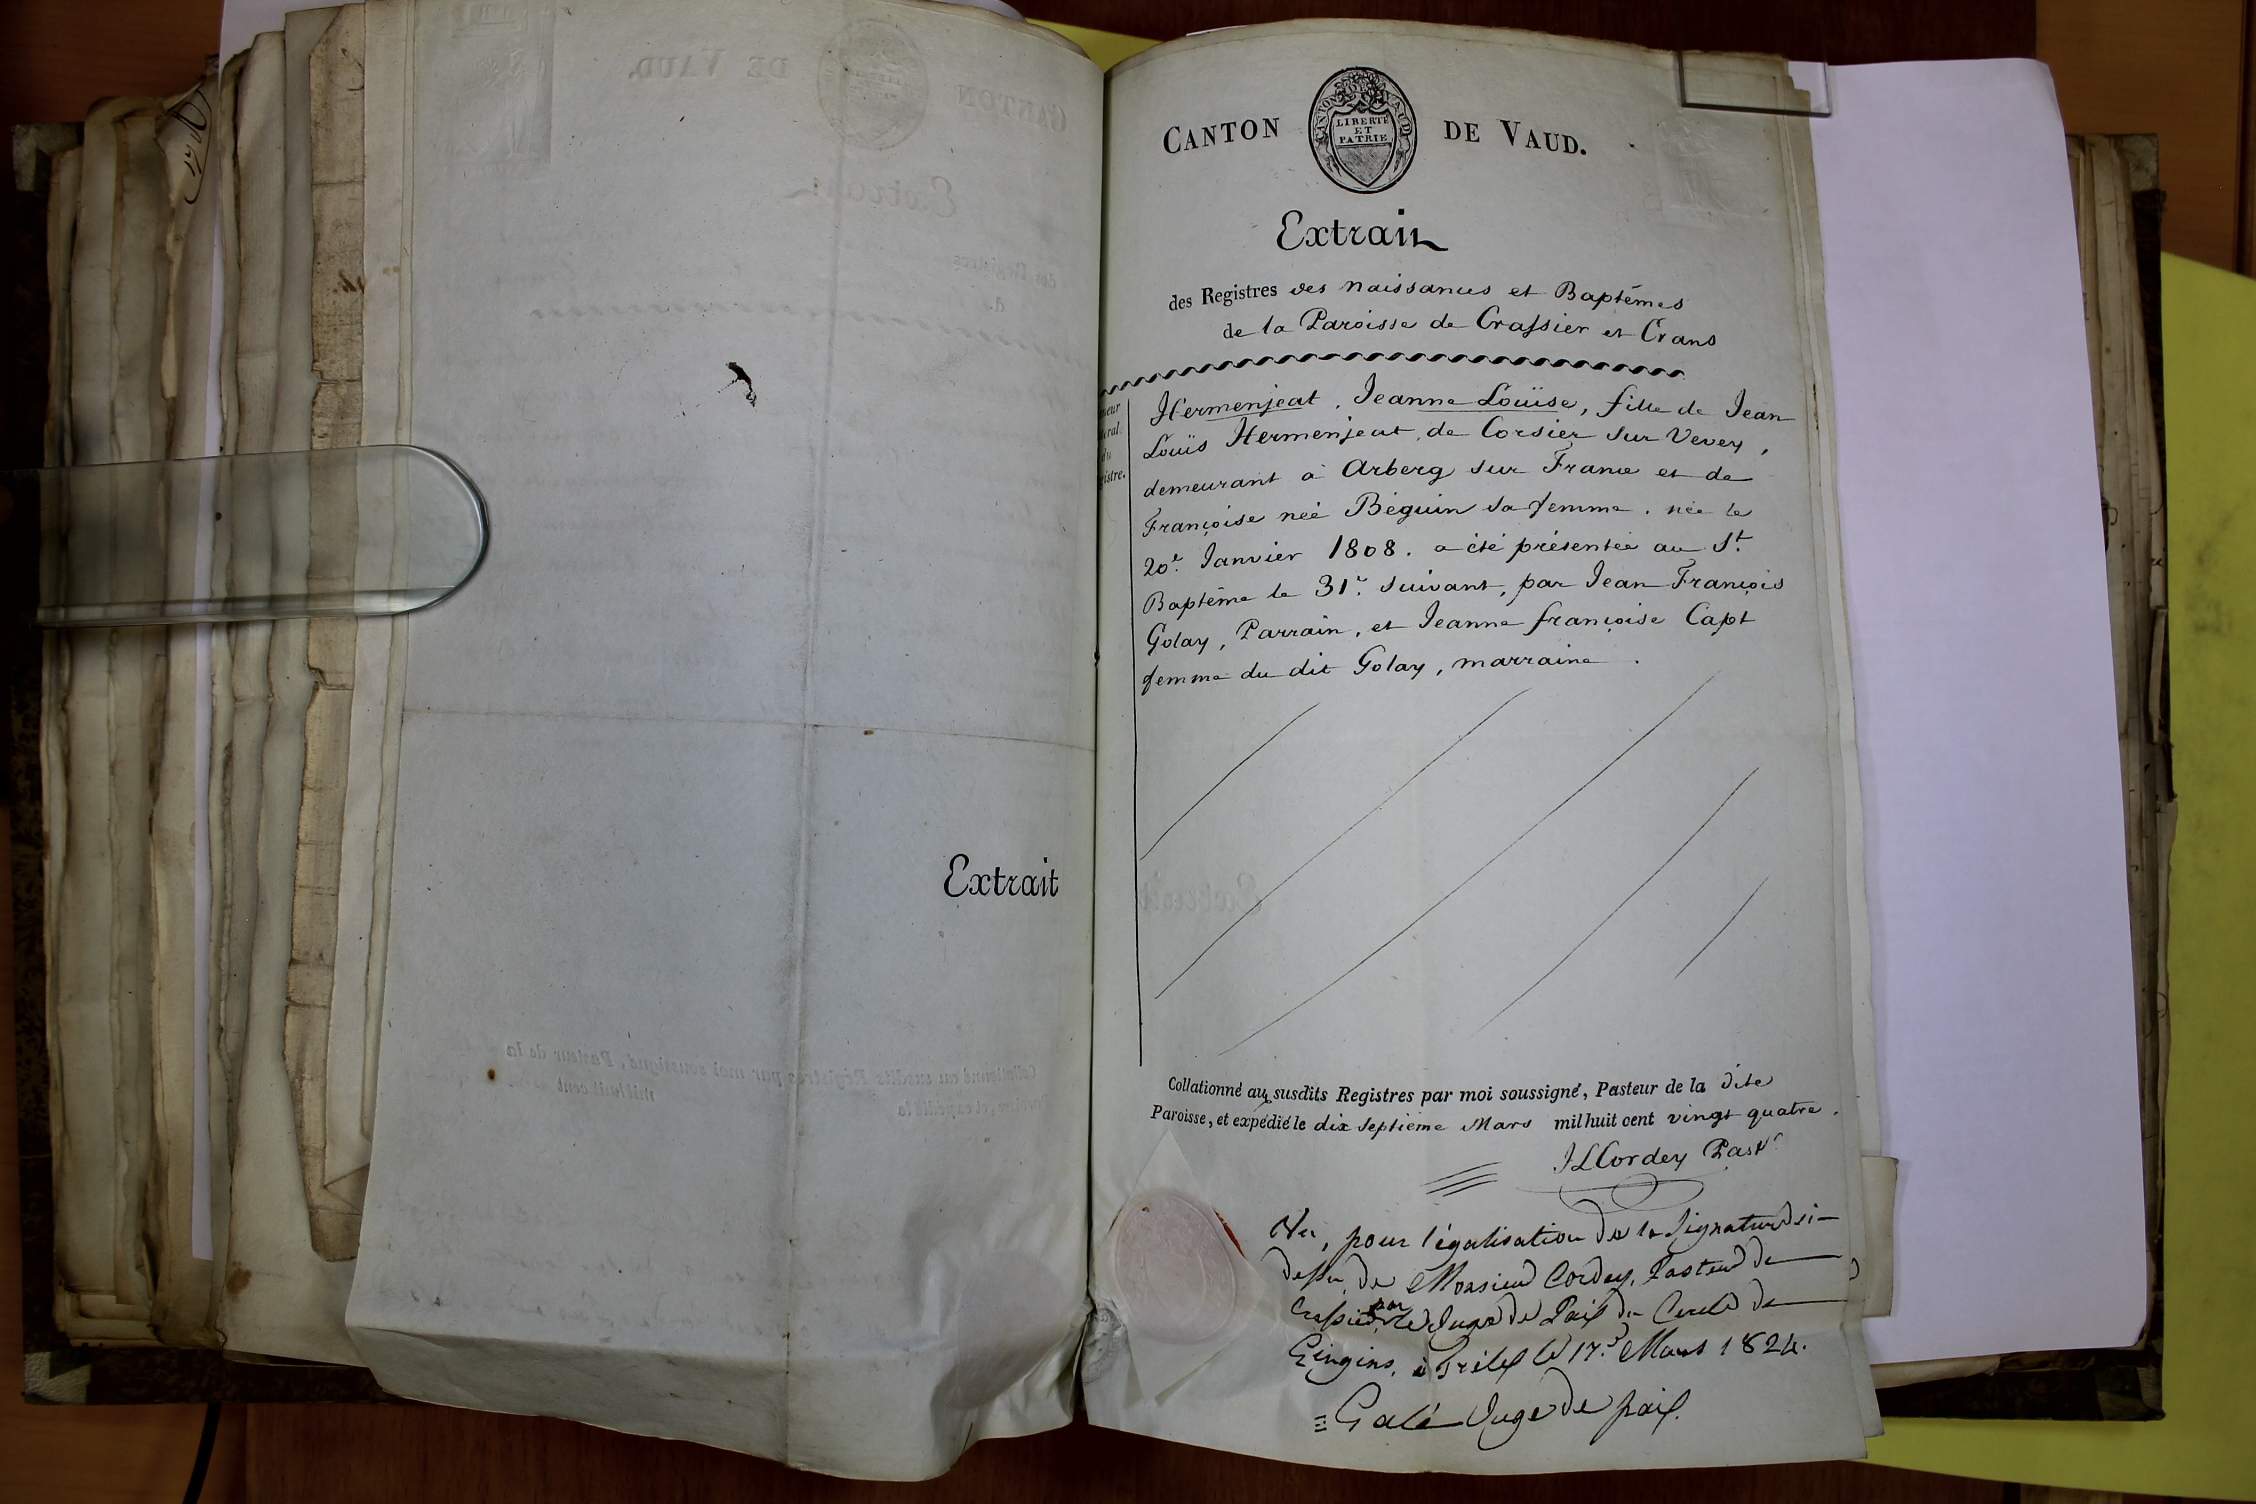 Extrait
CANTON DE VAUD.
CANTON DE VAUD
LIBERTÉ
ET
PATRIE
Extrait
des Registres des Naissances et Baptêmes
de la Paroisse de Crassier et Crans
Hermenjeat, Jeanne Louïse, fille de Jean
Louïs Hermenjeat, de Corsier sur Vevey,
demeurant à Arberg sur France et de
Françoise née Béguin sa femme, née le
20e. Janvier 1808. a été présentée au St.
Baptême le 31e. suivant, par Jean François
Golay, Parrain, et Jeanne françoise Capt
femme du dit Golay, marraine.
Collationné aux susdits Registres par moi soussigné, Pasteur de la dite
Paroisse, et expédié le dix septième Mars mil huit cent vingt quatre.
JLCordey Pastr
Vu, pour légalisation de la signature si-
dessu, de Monsieur Cordey, Pasteur de
Crassier, par le Juge de Paix du Cercle de
Gingins, à Trélex le 17e. Mars 1824.
Galé Juge de paix.